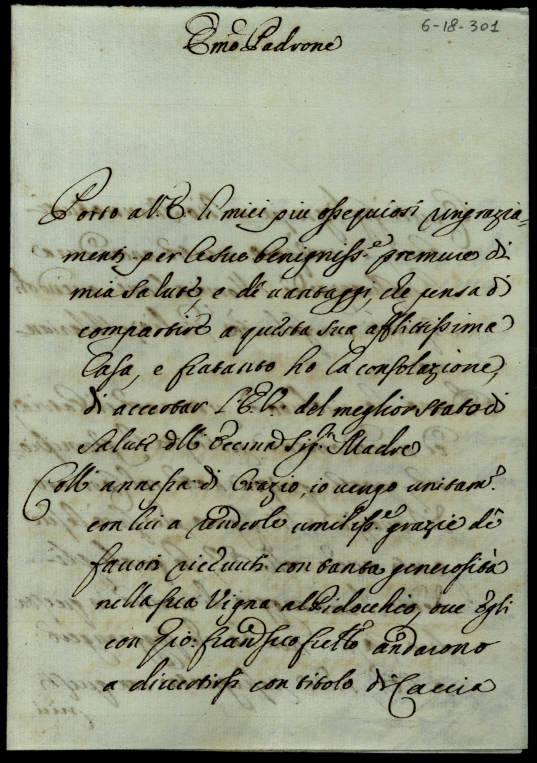 6-18-301
Emo. Padrone
Porto all'E. li miei piu ossequiosi ringrazia-
menti per le sue benigniss.e premure di
mia salute, e de vantaggi, che pensa di
compartire a questa sua afflittissima
Casa, e fratanto ho la consolazione,
di accertar l'E.V. del meglior stato di
salute della Sig.ra Madre
Coll' annessa di Orazio, io vengo unitam.e
con lui a renderle umiliss.e grazie de
favori ricevuti con tanta generosità
nella sua Vigna al Pidocchio, ove egli
con Gio: Francesco andarono
a divertirsi con titolo di Caccia